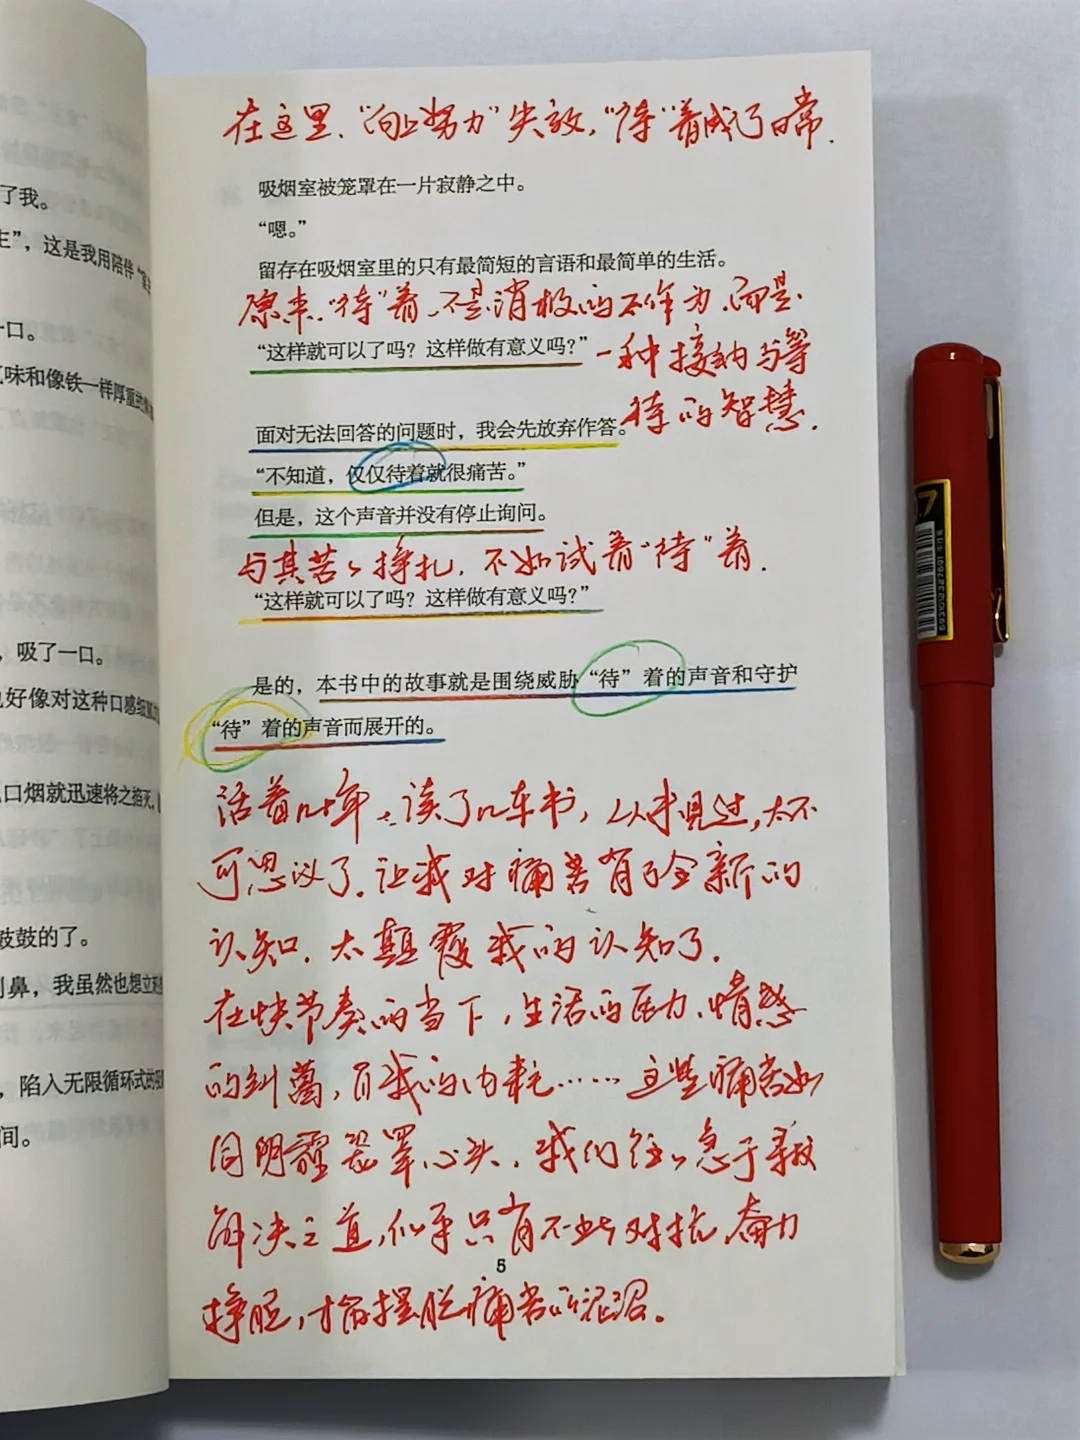 了我。
生”，这是我用陪伴“室
一口。
味和像铁一样厚重的
，吸了一口。
好像对这种口感细
口烟就迅速将之掐灭，
鼓鼓的了。
刺鼻，我虽然也想立
，陷入无限循环式的
间。
在这里、“向上努力”失效，“待”着成了日常.
吸烟室被笼罩在一片寂静之中。
“嗯。”
留存在吸烟室里的只有最简短的言语和最简单的生活。
原来，“待”着、不是消极的不作为、而是
“这样就可以了吗？这样做有意义吗？”一种接纳与等
待的智慧.
面对无法回答的问题时，我会先放弃作答。
“不知道，仅仅待着就很痛苦。”
但是，这个声音并没有停止询问。
与其苦苦挣扎，不如试着“待”着.
“这样就可以了吗？这样做有意义吗？”
是的，本书中的故事就是围绕威胁“待”着的声音和守护
“待”着的声音而展开的。
活着几十年、读了几车书，从未见过，太不
可思议了.让我对痛苦有了全新的
认知.太颠覆我的认知了.
在快节奏的当下，生活的压力、情感
的纠葛，自我的内耗……这些痛苦如
同阴霾笼罩心头.我们往往急于寻找
解决之道，似乎只有不断对抗、奋力
挣脱，才能摆脱痛苦的泥沼。
5
0.7